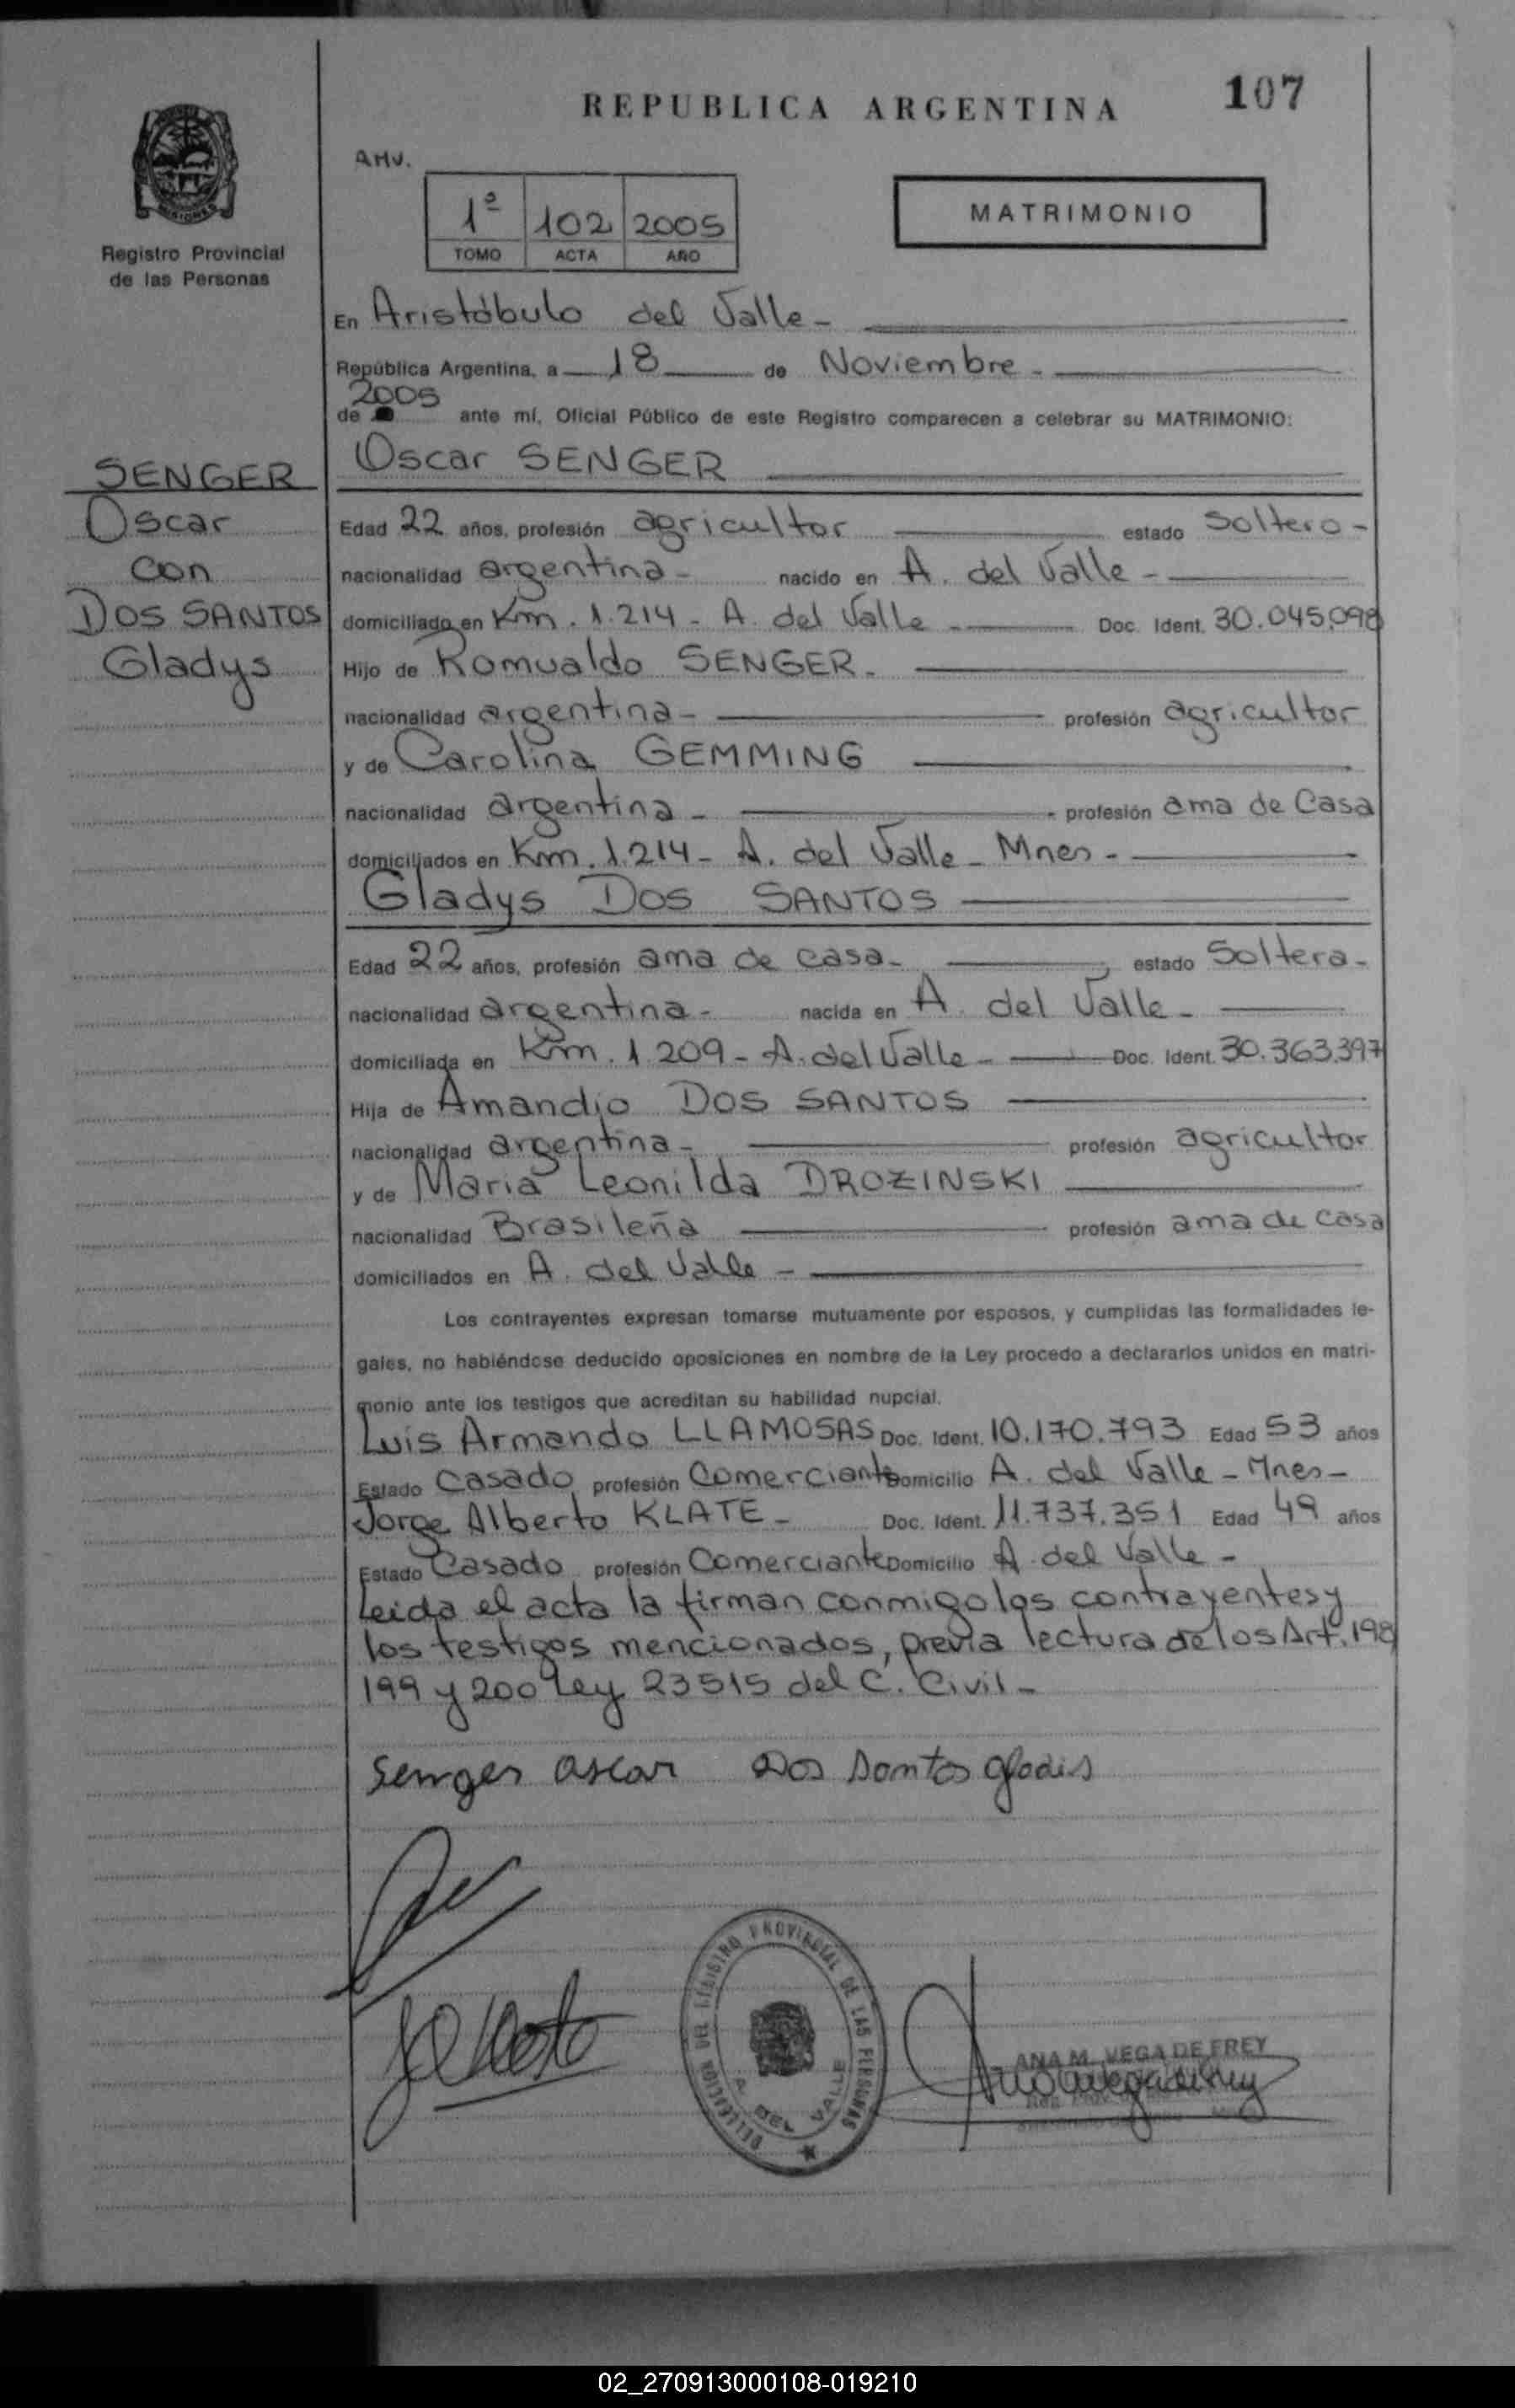 REPUBLICA ARGENTINA 107
MISIONES
Registro Provincial
de las Personas
AHV.
1º 102 2005
TOMO ACTA AÑO
MATRIMONIO
En Aristóbulo del Valle -
República Argentina, a 18 de Noviembre -
2005
de ante mí, Oficial Público de este Registro comparecen a celebrar su MATRIMONIO:
Oscar SENGER
SENGER
Oscar
con
DOS SANTOS
Gladys
Edad 22 años, profesión agricultor estado Soltero -
nacionalidad argentina - nacido en A. del Valle -
domiciliado en Km. 1.214 - A. del Valle - Doc. Ident. 30.045.098
Hijo de Romualdo SENGER -
nacionalidad argentina - profesión agricultor
y de Carolina GEMMING
nacionalidad argentina - profesión ama de Casa
domiciliados en Km. 1.214 - A. del Valle - Mnes -
Gladys DOS SANTOS
Edad 22 años, profesión ama de casa - estado Soltera -
nacionalidad argentina - nacida en A. del Valle -
domiciliada en Km. 1.209 - A. del Valle - Doc. Ident. 30.363.397
Hija de Amandio DOS SANTOS
nacionalidad argentina - profesión agricultor
y de Maria Leonilda DROZINSKI
nacionalidad Brasileña profesión ama de casa
domiciliados en A. del Valle -
Los contrayentes expresan tomarse mutuamente por esposos, y cumplidas las formalidades le-
gales, no habiéndose deducido oposiciones en nombre de la Ley procedo a declararlos unidos en matri-
monio ante los testigos que acreditan su habilidad nupcial.
Luis Armando LLAMOSAS Doc. Ident. 10.170.793 Edad 53 años
Estado Casado profesión Comerciante Domicilio A. del Valle - Mnes -
Jorge Alberto KLATE - Doc. Ident. 11.737.351 Edad 49 años
Estado Casado profesión Comerciante Domicilio A. del Valle -
Leida el acta la firman conmigo los contrayentes y
los testigos mencionados, previa lectura de los Art. 198
199 y 200 Ley 23515 del C. Civil -
Senger Oscar Dos Santos gladis
DELEGACION DEL REGISTRO PROVINCIAL DE LAS PERSONAS
A. DEL VALLE
ANA M. VEGA DE FREY
02_270913000108-019210